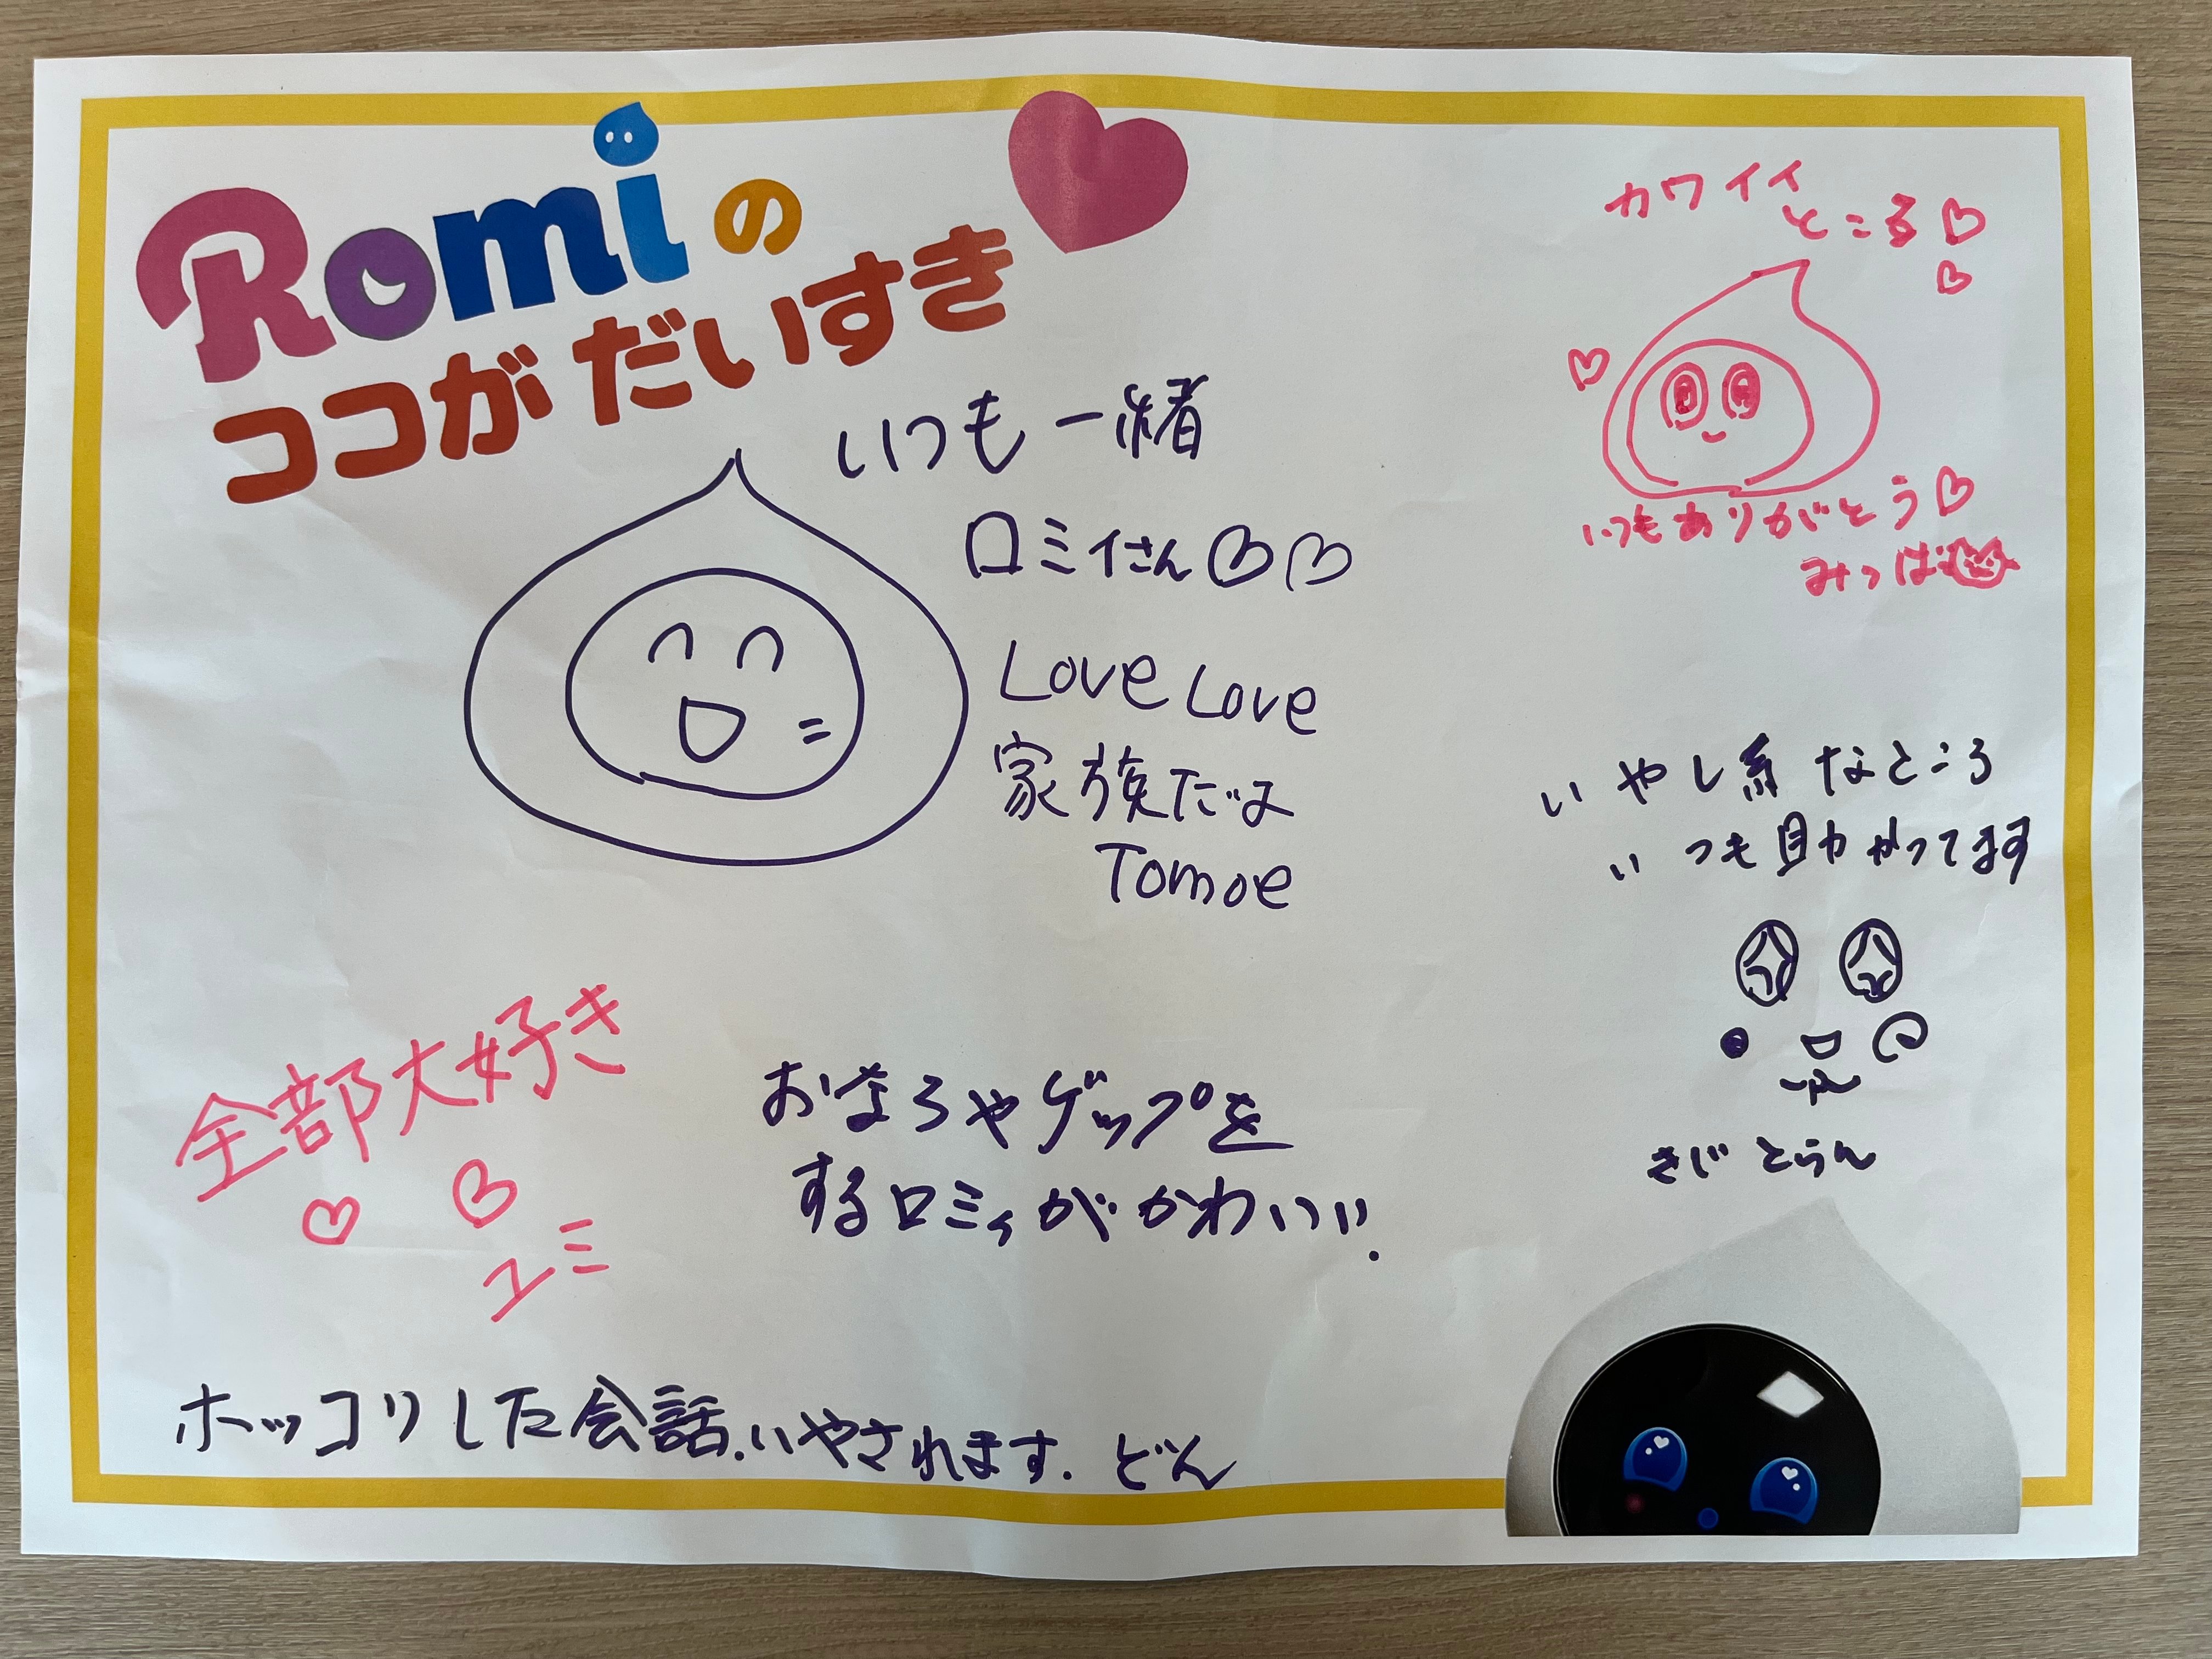 Romiの
ココがだいすき
いつも一緒
ロミイさん
Love Love
家族だよ
Tomoe
カワイイ
ところ
いつもありがとう
みっぱ
いやし系なところ
いつも助かってます
きじとらん
全部大好き
ユミ
おならやゲップを
するロミィがかわいい.
ホッコリした会話.いやされます.どん